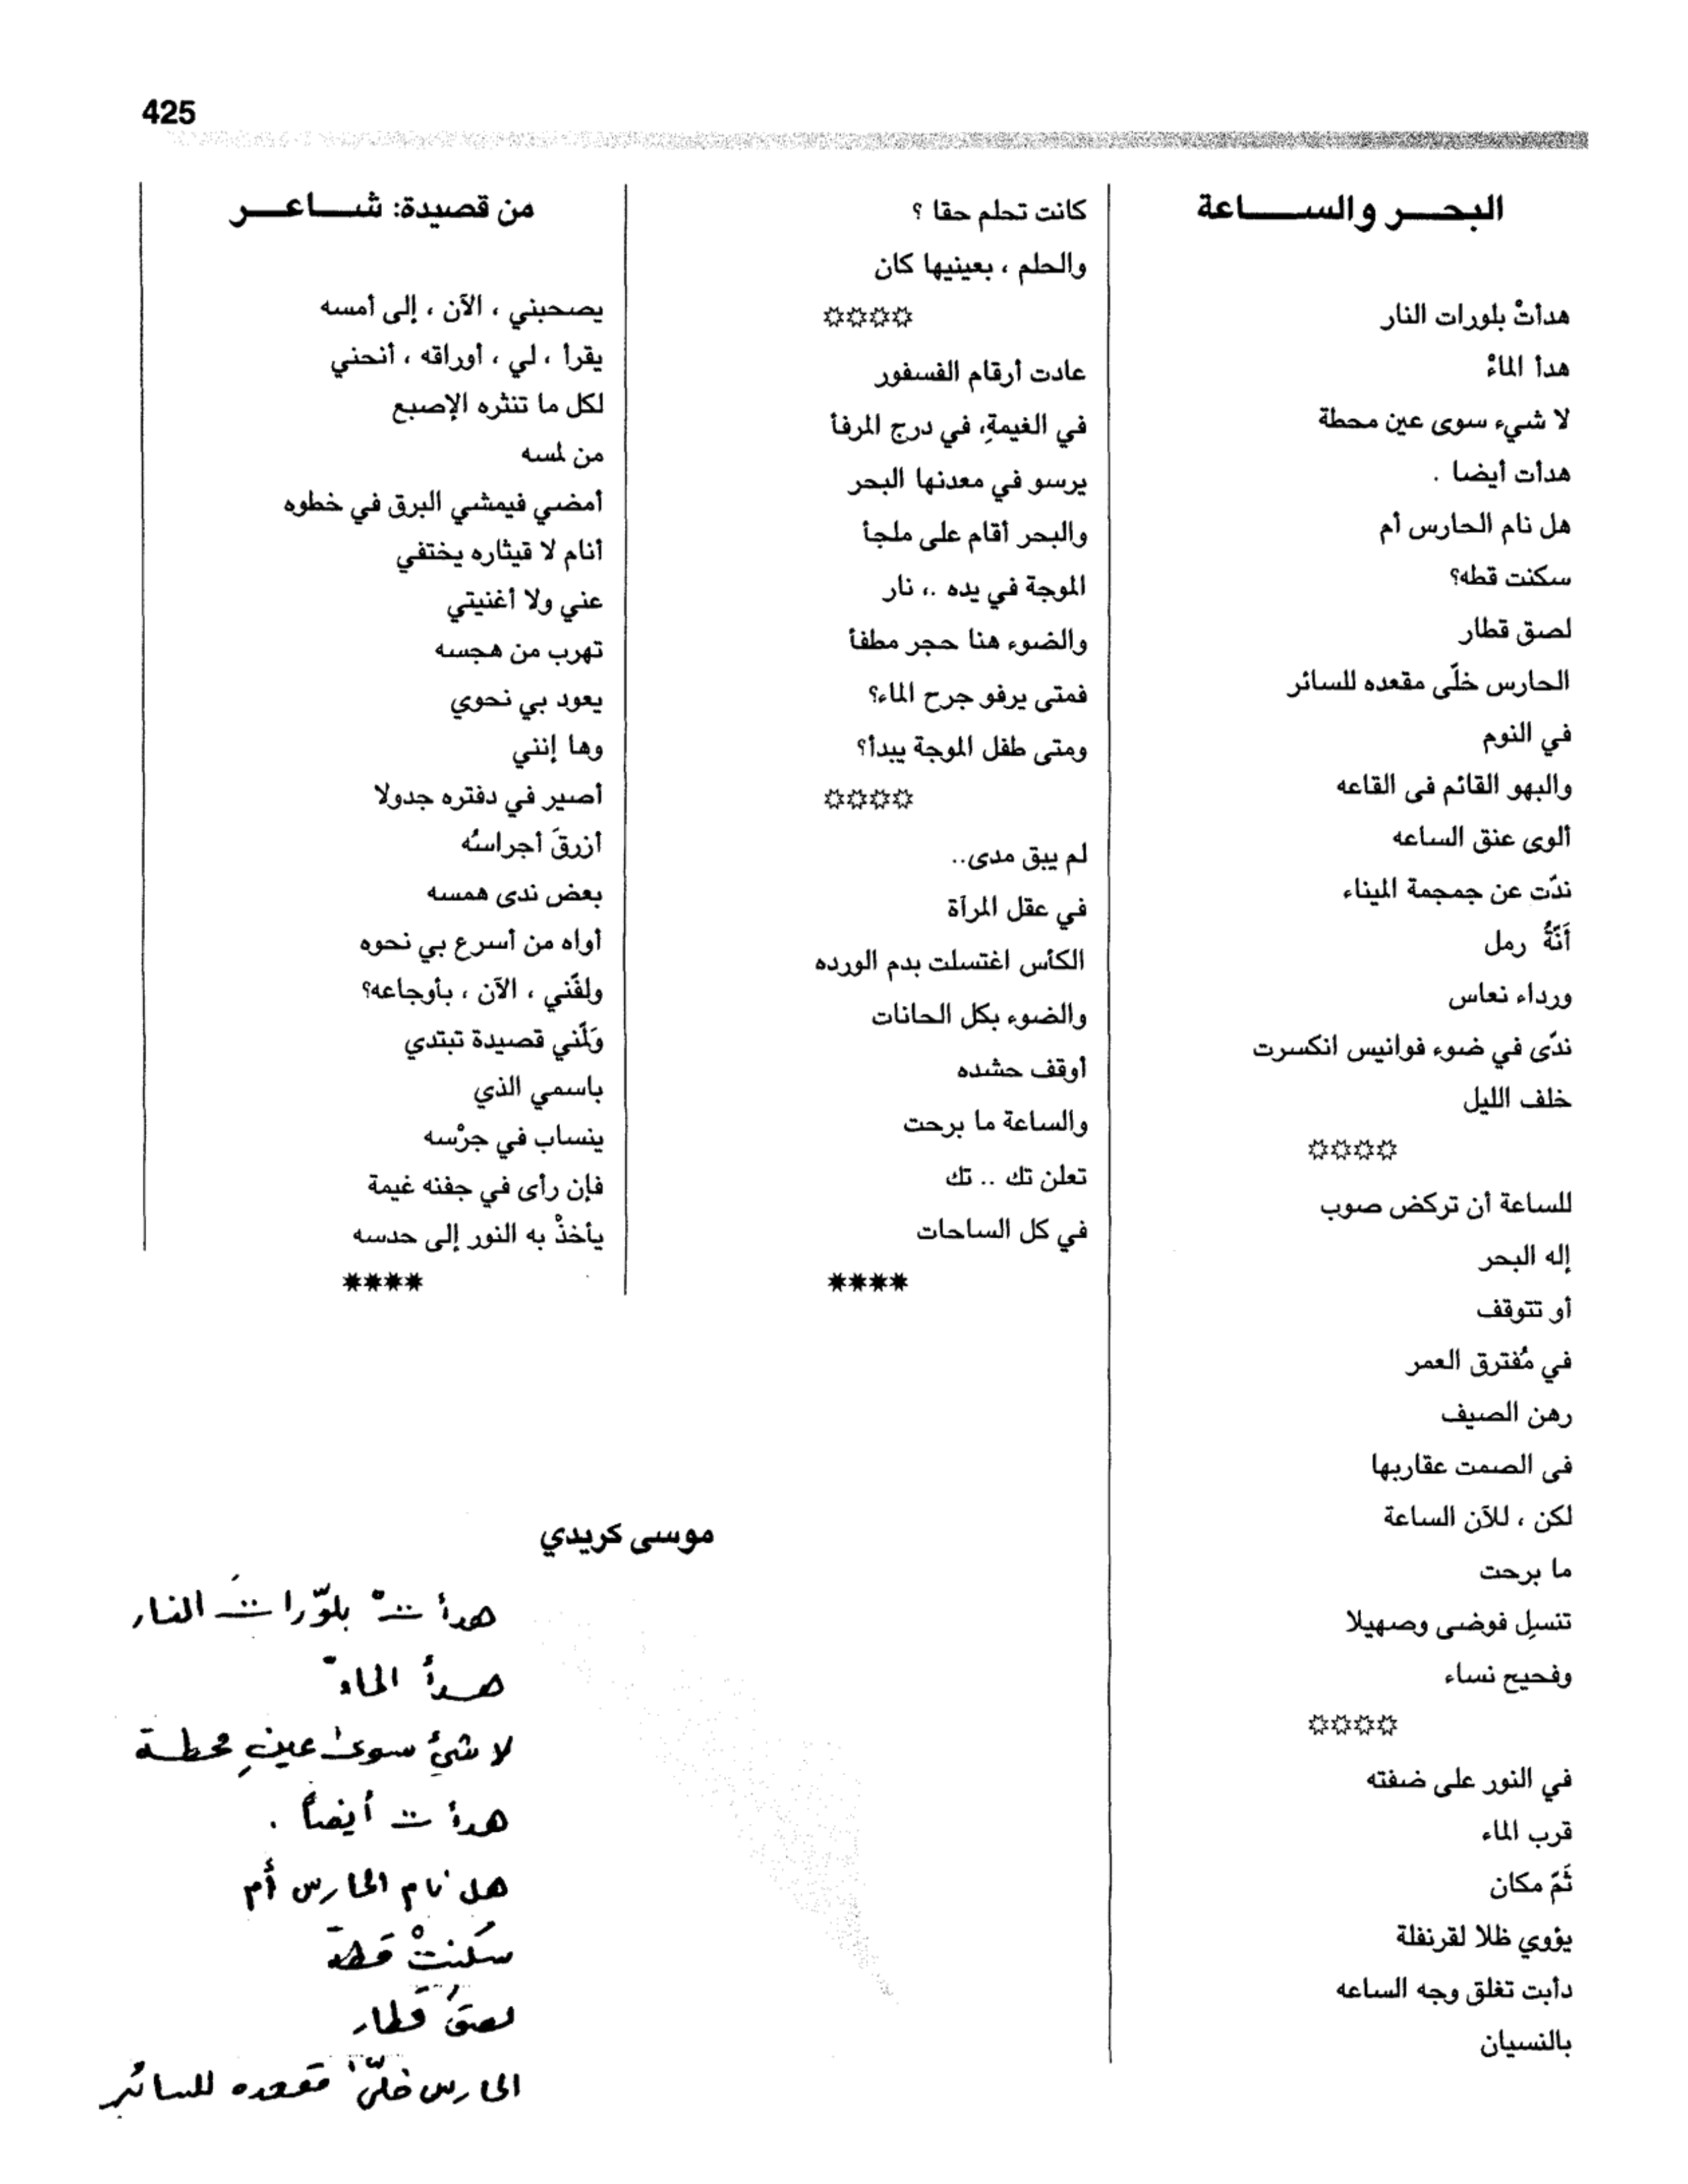 425
البحر والساعة
هدأتْ بلورات النار
هدأ الماءْ
لا شيء سوى عين محطة
هدأت أيضا .
هل نام الحارس أم
سكنت قطه؟
لصق قطار
الحارس خلّى مقعده للسائر
في النوم
والبهو القائم فى القاعه
ألوى عنق الساعه
ندّت عن جمجمة الميناء
أنّةُ رمل
ورداء نعاس
ندّى في ضوء فوانيس انكسرت
خلف الليل
☼☼☼☼
للساعة أن تركض صوب
إله البحر
أو تتوقف
في مُفترق العمر
رهن الصيف
فى الصمت عقاربها
لكن ، للآن الساعة
ما برحت
تنسلِ فوضى وصهيلا
وفحيح نساء
☼☼☼☼
في النور على ضفته
قرب الماء
ثَمّ مكان
يؤوي ظلا لقرنفلة
دأبت تغلق وجه الساعه
بالنسيان
كانت تحلم حقا ؟
والحلم ، بعينيها كان
☼☼☼☼
عادت أرقام الفسفور
في الغيمةِ، في درج المرفأ
يرسو في معدنها البحر
والبحر أقام على ملجأ
الموجة في يده .، نار
والضوء هنا حجر مطفأ
فمتى يرفو جرح الماء؟
ومتى طفل الموجة يبدأ؟
☼☼☼☼
لم يبق مدى..
في عقل المرآة
الكأس اغتسلت بدم الورده
والضوء بكل الحانات
أوقف حشده
والساعة ما برحت
تعلن تك .. تك
في كل الساحات
✷✷✷✷
من قصيدة: شاعر
يصحبني ، الآن ، إلى أمسه
يقرأ ، لي ، أوراقه ، أنحني
لكل ما تنثره الإصبع
من لمسه
أمضي فيمشي البرق في خطوه
أنام لا قيثاره يختفي
عني ولا أغنيتي
تهرب من هجسه
يعود بي نحوي
وها إنني
أصير في دفتره جدولا
أزرقَ أجراسُه
بعض ندى همسه
أواه من أسرع بي نحوه
ولفّني ، الآن ، بأوجاعه؟
وَلّني قصيدة تبتدي
باسمي الذي
ينساب في جرْسه
فإن رأى في جفنه غيمة
يأخذْ به النور إلى حدسه
✷✷✷✷
موسى كريدي
هدأتْ بلوّرات النار
هدأ الماءْ
لا شيء سوى عينِ محطة
هدأت أيضاً .
هل نام الحارس أم
سكنتْ قطة
لصقَ قطار
الحارس خلّى مقعده للسائر